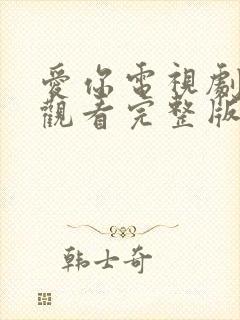 愛你電視劇
觀看完整版
韩士奇